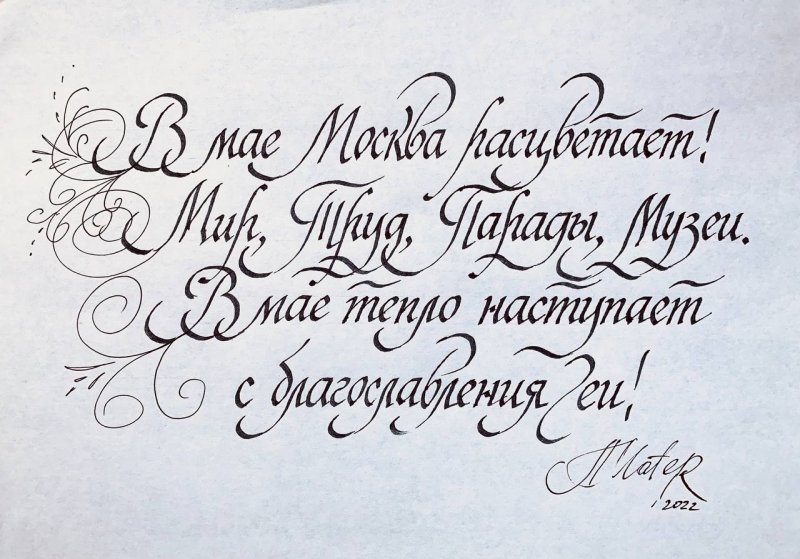 В мае Москва расцветает!
Мир, Труд, Парады, Музеи.
В мае тепло наступает
с благославления Геи!
2022